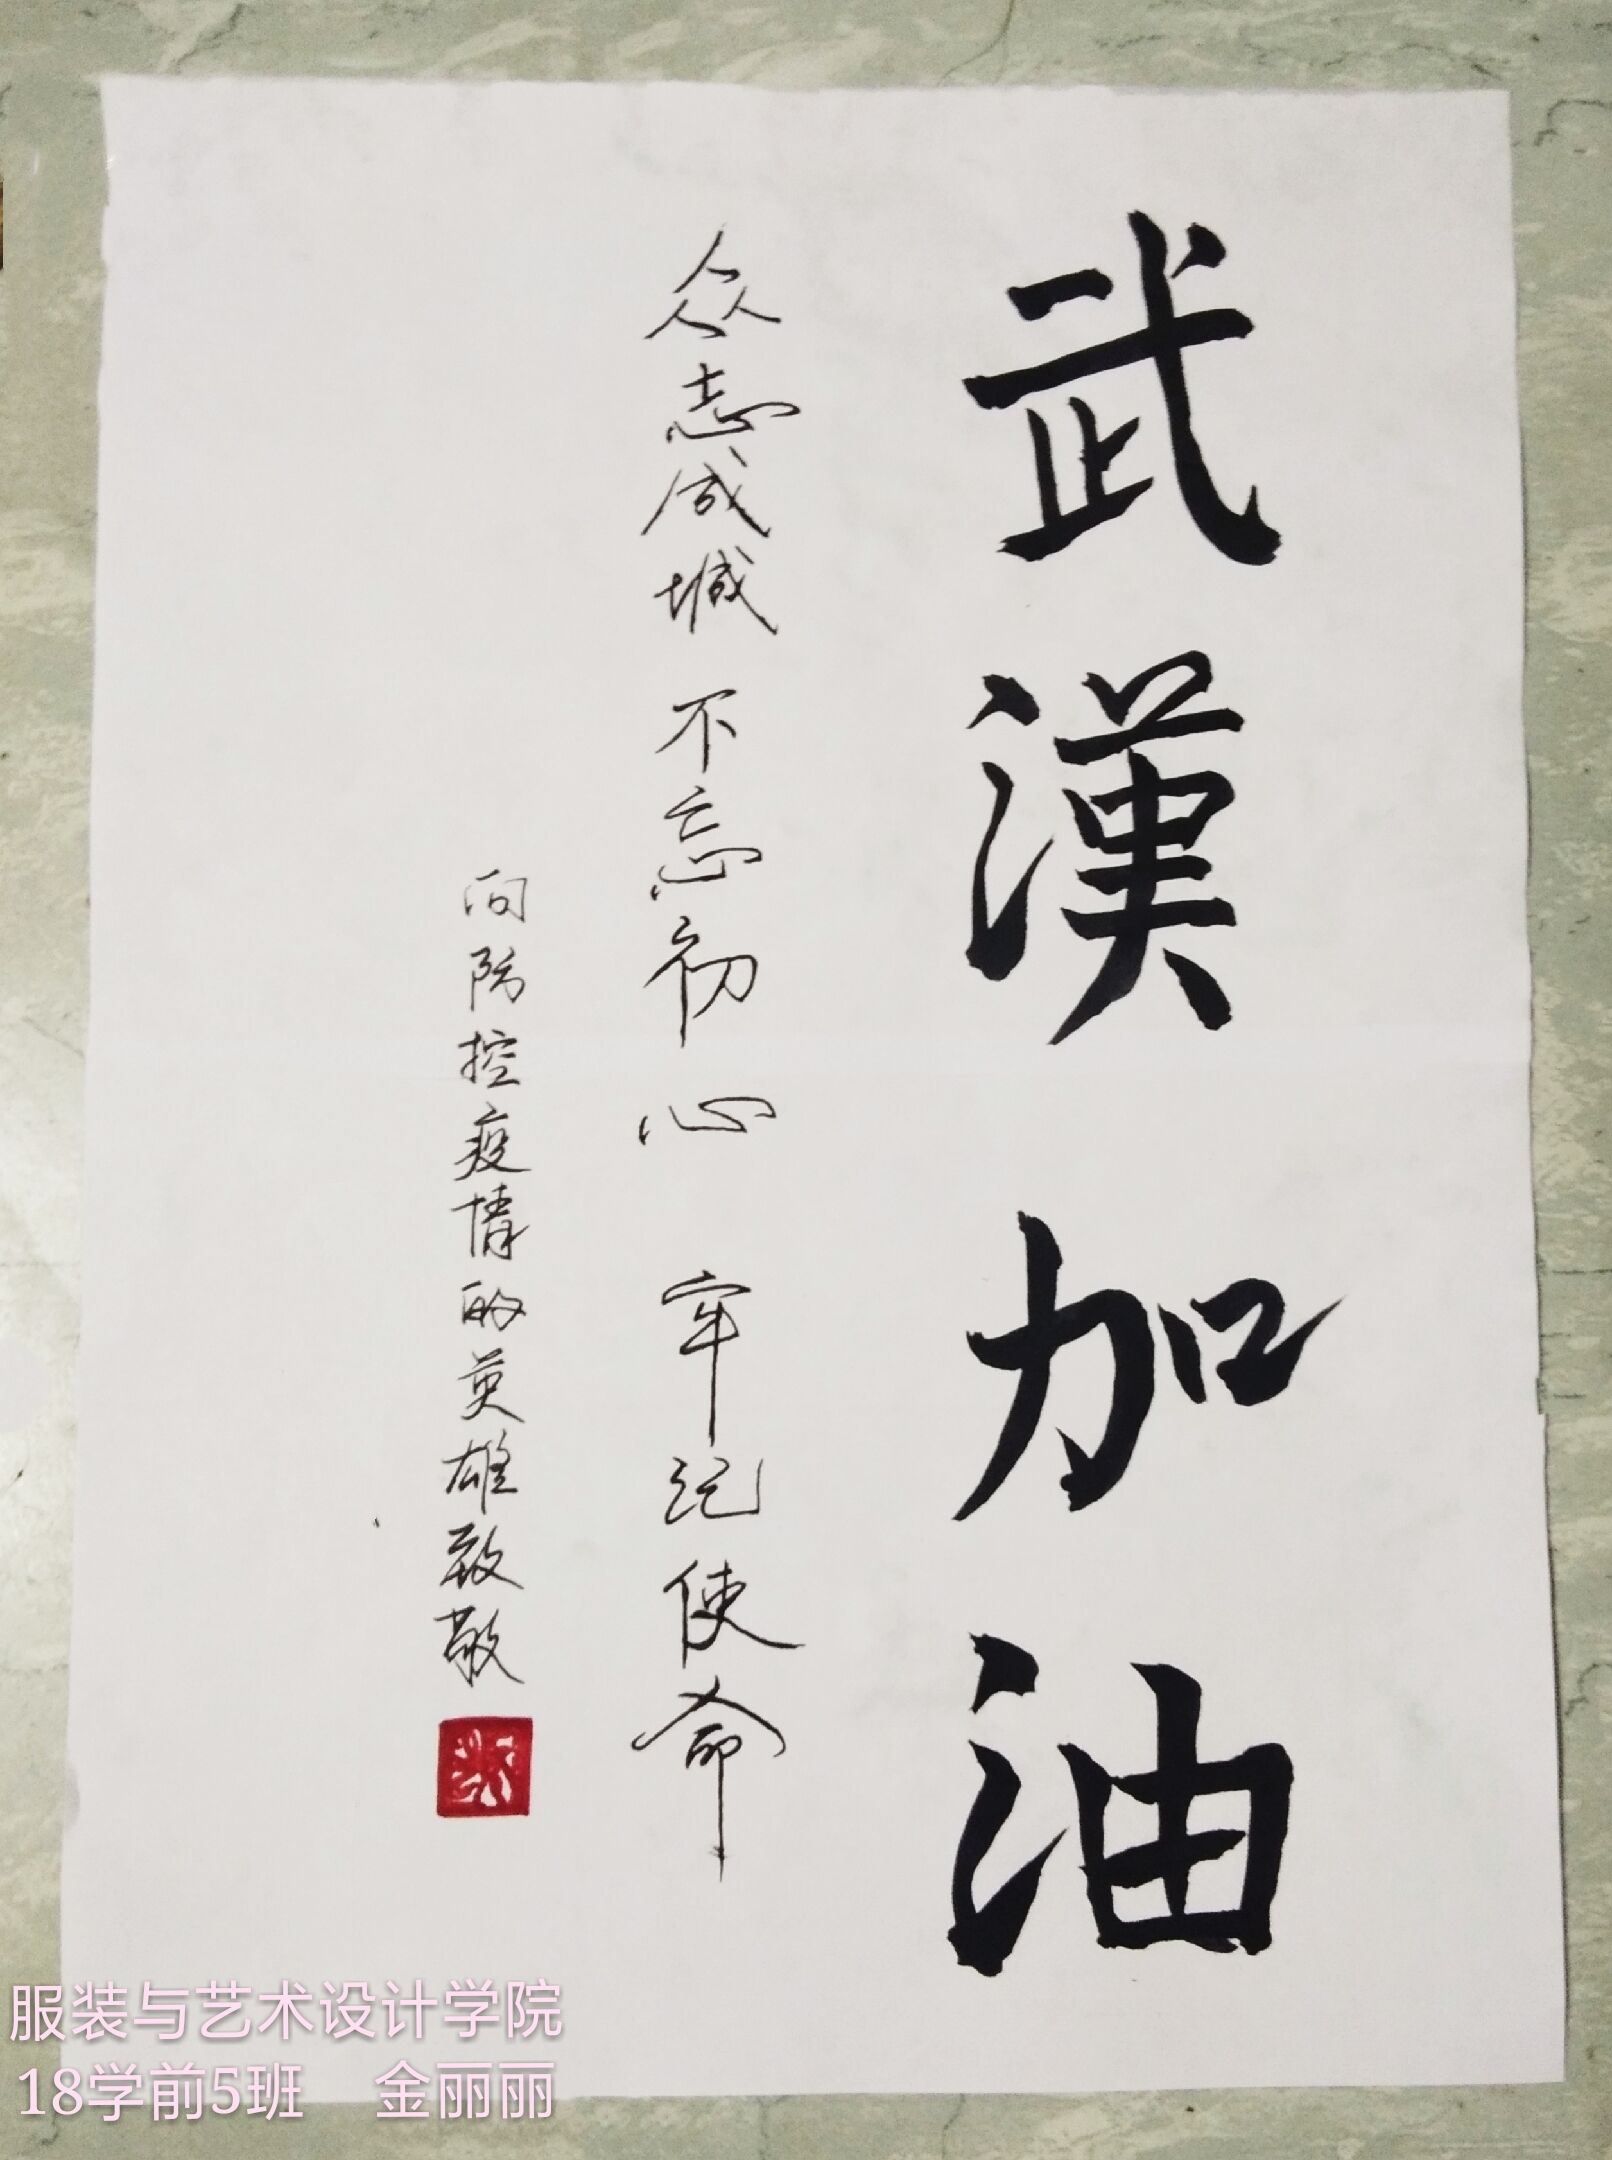 武漢加油
众志成城 不忘初心 牢记使命
向防控疫情的英雄致敬
服装与艺术设计学院
18学前5班 金丽丽